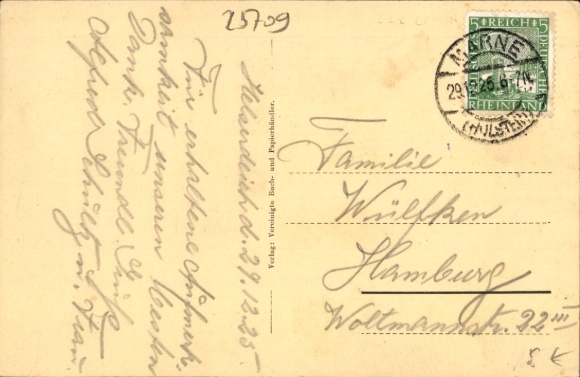 25709
5 REICH 5
DEUTSCHES
RHEINLAND
MARNE
29.12.25.6-7N.
(HOLSTEIN)
Helserdeich d. 29.12.25.
Für erhaltene Aufmerk-
samkeit unseren besten
Dank. Freundl. Gruß
Alfred Schultz u. Frau.
Verlag: Vereinigte Buch- und Papierhändler.
Familie
Wülfken
Hamburg
Woltmannstr. 22 III
8 €